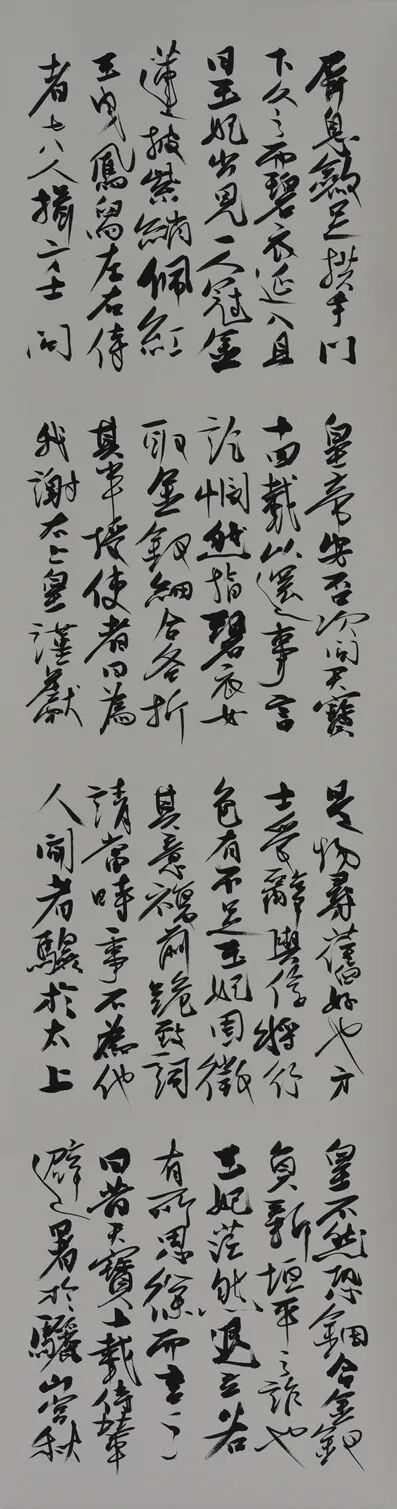 屏息斂足拱手門
下久之而碧衣延入且
曰玉妃出見一人冠金
蓮披紫綃佩紅
玉曳鳳舄左右侍
者七八人揖方士問
皇帝安否次問天寶
十四載以還事言
訖憫然指碧衣女
取金釵鈿合各折
其半授使者曰為
我謝太上皇謹獻
是物尋舊好也方
士受辭與信將行
色有不足玉妃固徵
其意複前跪致詞
請當時事不為他
人聞者驗於太上
皇不然恐鈿合金釵
負新垣平之詐也
玉妃茫然退立若
有所思徐而言
曰昔天寶十載侍輦
避暑於驪山宮秋